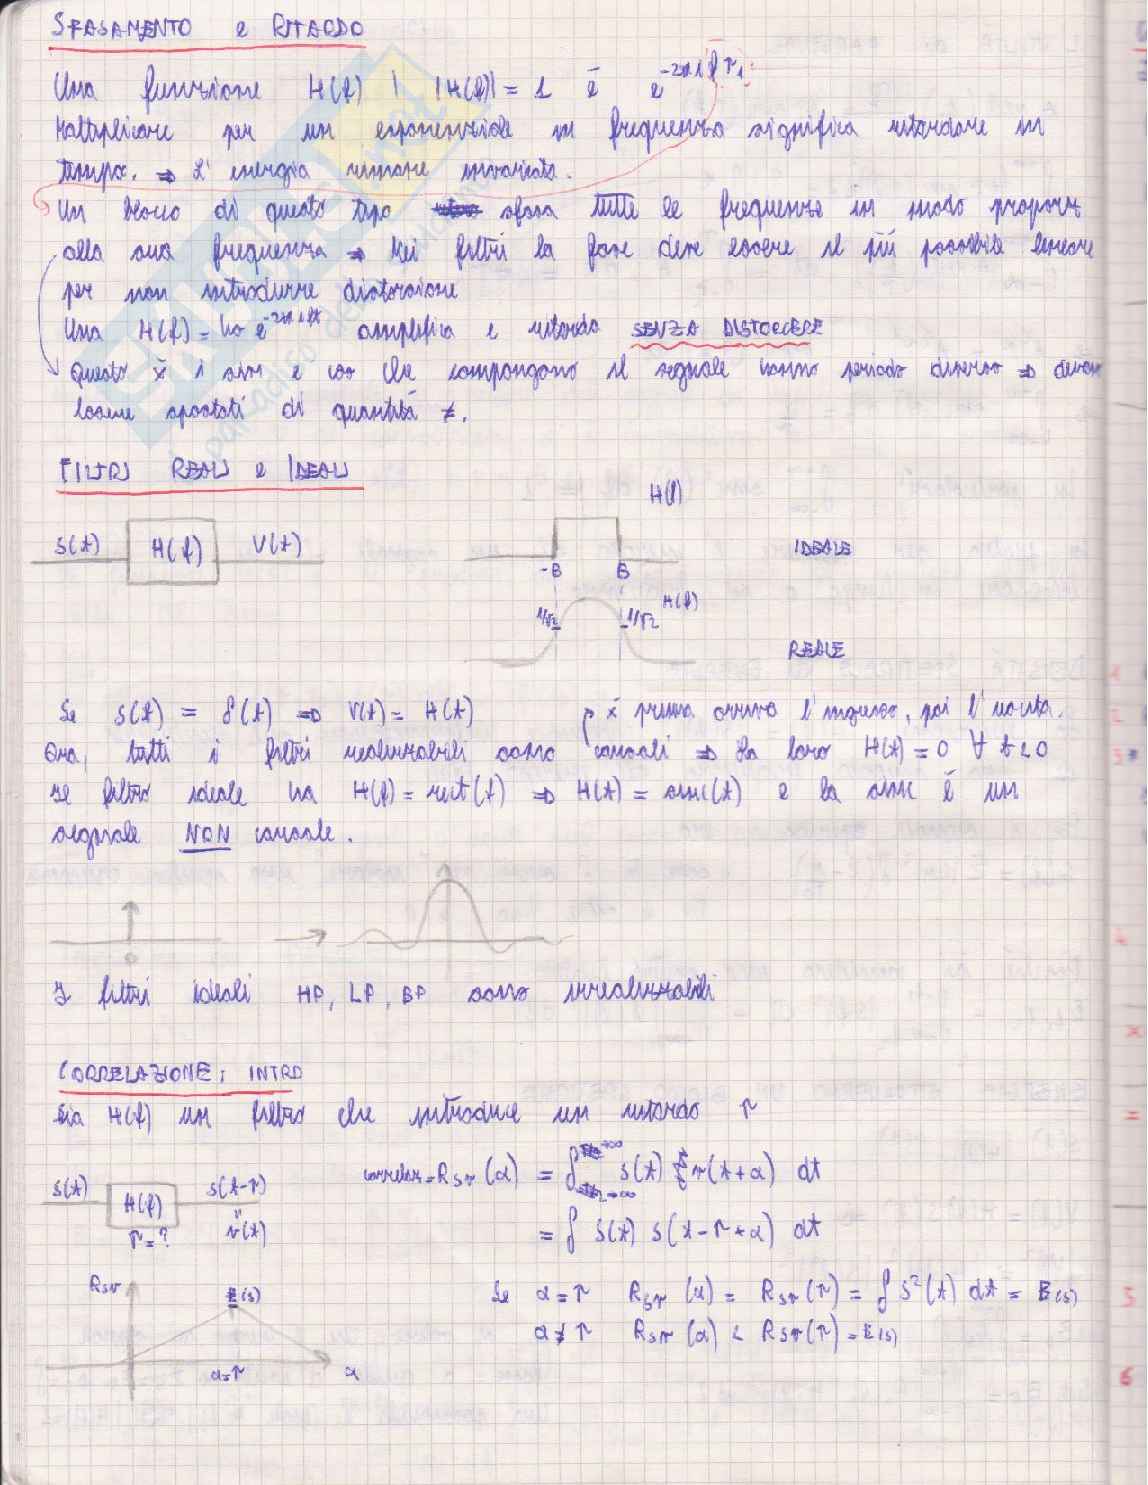 SFASAMENTO e RITARDO
Una funzione H(f) | |H(f)| = 1 è e^{-2πifτ}
Moltiplicare per un esponenziale in frequenza significa ritardare in
tempo. ⇒ L'energia rimane invariata.
Un blocco di questo tipo sfasa tutte le frequenze in modo proporz
alla sua frequenza ⇒ Nei filtri la fase deve essere il più possibile lineare
per non introdurre distorsione
Una H(f) = e^{-2πifτ} amplifica e ritarda SENZA DISTORCERE
Questo x i sin e cos che compongono il segnale hanno periodo diverso ⇒ devono
essere spostati di quantità ≠.
FILTRI REALI e IDEALI
S(t) H(f) V(t)
H(f)
IDEALE
-B B
1/√2 1/√2 H(f)
REALE
Se S(t) = δ(t) ⇒ V(t) = H(t) x prima arriva l'ingresso, poi l'uscita.
Ora, tutti i filtri realizzabili sono causali ⇒ La loro H(t) = 0 ∀ t<0
Il filtro ideale ha H(f) = rect(f) ⇒ H(t) = sinc(t) e la sinc è un
segnale NON causale.
0
I filtri ideali HP, LP, BP sono irrealizzabili
CORRELAZIONE: INTRO
Sia H(f) un filtro che introduce un ritardo τ
S(t) H(f) S(t-τ)
τ=? v(t)
correlaz = Rsv(α) = ∫ s(t) v(t+α) dt
= ∫ S(t) S(t-τ+α) dt
Rsv E(s)
α=τ α
Se α=τ Rsv(α) = Rsv(τ) = ∫ S²(t) dt = E(s)
α≠τ Rsv(α) < Rsv(τ) = E(s)